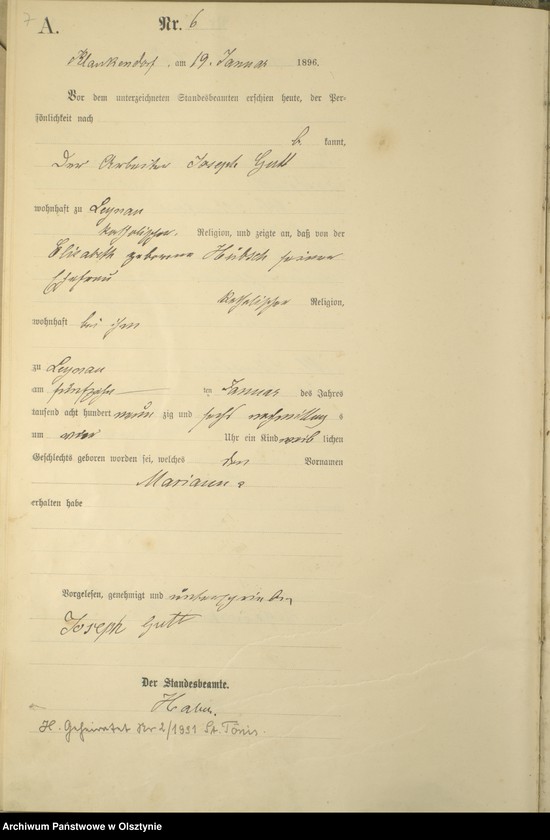 7
A.
Nr. 6
Klaukendorf, am 19. Januar 1896.
Vor dem unterzeichneten Standesbeamten erschien heute, der Per-
sönlichkeit nach
be kannt,
der Arbeiter Joseph Gutt
wohnhaft zu Leynau
katholischer Religion, und zeigte an, daß von der
Elisabeth geborene Hübsch seiner
Ehefrau
katholischer Religion,
wohnhaft bei ihm
zu Leynau
am fünfzehn ten Januar des Jahres
tausend acht hundert neun zig und sechs nachmittags
um vier Uhr ein Kind weib lichen
Geschlechts geboren worden sei, welches den Vornamen
Marianna
erhalten habe
Vorgelesen, genehmigt und unterschrieben
Joseph Gutt
Der Standesbeamte.
H. Geheiratet Nr 2/1931 St. Tönis.
Archiwum Państwowe w Olsztynie